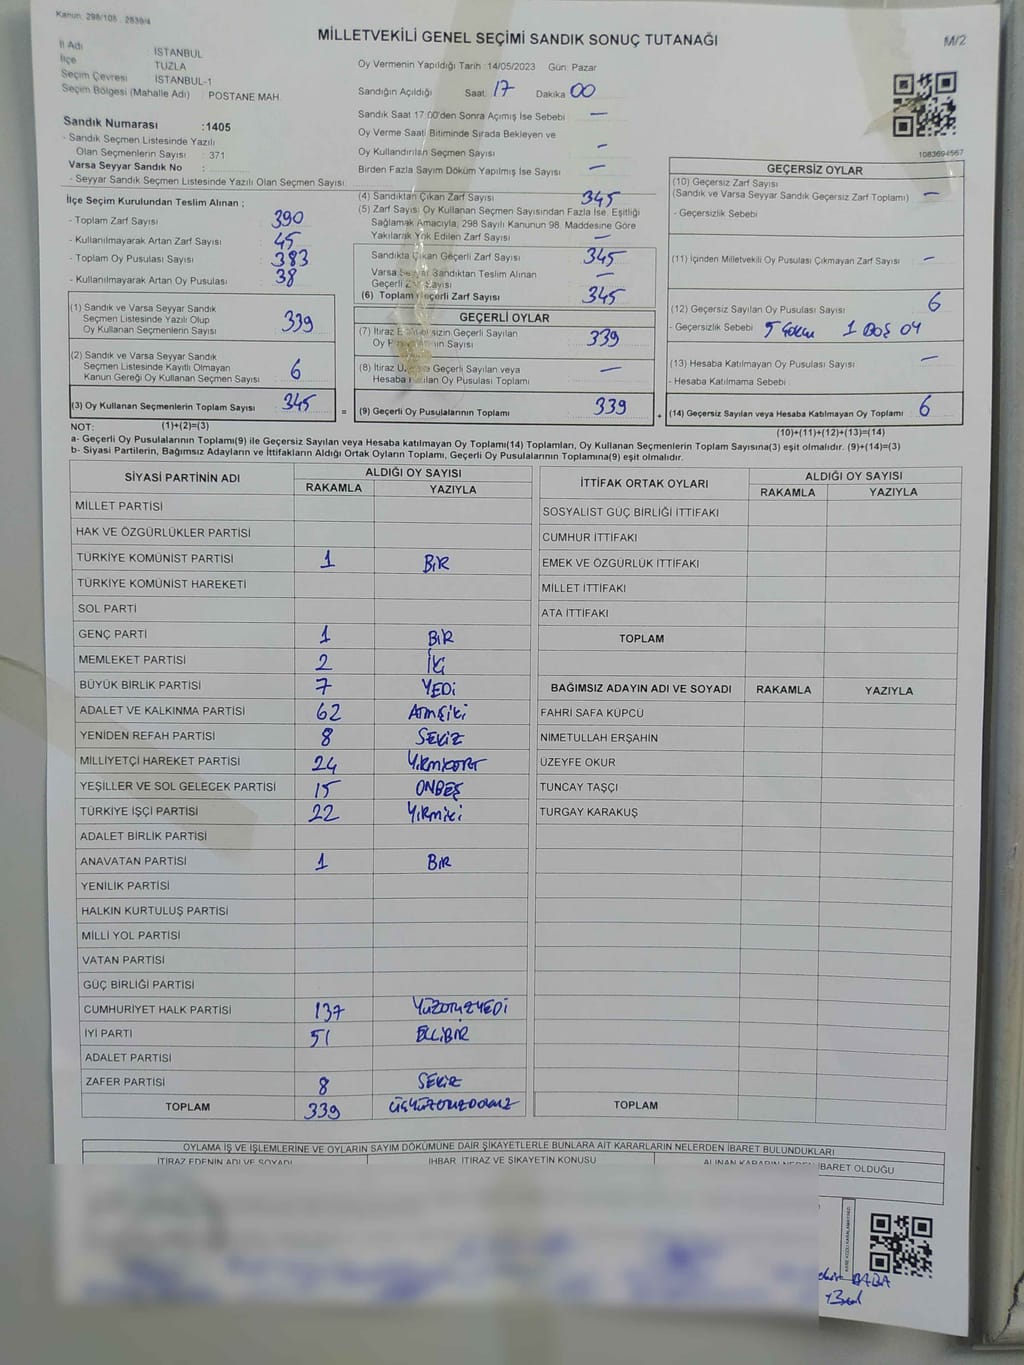 Kanun: 298/105 . 2839/4
MİLLETVEKİLİ GENEL SEÇİMİ SANDIK SONUÇ TUTANAĞI
M/2
İl Adı İSTANBUL
İlçe TUZLA
Seçim Çevresi İSTANBUL-1
Seçim Bölgesi (Mahalle Adı) : POSTANE MAH.
Oy Vermenin Yapıldığı Tarih :14/05/2023 Gün: Pazar
Sandığın Açıldığı Saat: 17 Dakika 00
Sandık Saat 17:00'den Sonra Açımış İse Sebebi —
Oy Verme Saati Bitiminde Sırada Bekleyen ve
Oy Kullandırılan Seçmen Sayısı –
Birden Fazla Sayım Döküm Yapılmış İse Sayısı —
Sandık Numarası :1405
- Sandık Seçmen Listesinde Yazılı
Olan Seçmenlerin Sayısı : 371
Varsa Seyyar Sandık No :
- Seyyar Sandık Seçmen Listesinde Yazılı Olan Seçmen Sayısı:
1083694567
İlçe Seçim Kurulundan Teslim Alınan ;
- Toplam Zarf Sayısı : 390
- Kullanılmayarak Artan Zarf Sayısı : 45
- Toplam Oy Pusulası Sayısı : 383
- Kullanılmayarak Artan Oy Pusulası : 38
(1) Sandık ve Varsa Seyyar Sandık
Seçmen Listesinde Yazılı Olup
Oy Kullanan Seçmenlerin Sayısı : 339
(2) Sandık ve Varsa Seyyar Sandık
Seçmen Listesinde Kayıtlı Olmayan
Kanun Gereği Oy Kullanan Seçmen Sayısı : 6
(3) Oy Kullanan Seçmenlerin Toplam Sayısı : 345
(4) Sandıktan Çıkan Zarf Sayısı 345
(5) Zarf Sayısı Oy Kullanan Seçmen Sayısından Fazla İse, Eşitliği
Sağlamak Amacıyla; 298 Sayılı Kanunun 98. Maddesine Göre
Yakılarak Yok Edilen Zarf Sayısı —
Sandıkta Çıkan Geçerli Zarf Sayısı 345
Varsa Seyyar Sandıktan Teslim Alınan
Geçerli Zarf Sayısı —
(6) Toplam Geçerli Zarf Sayısı 345
GEÇERLİ OYLAR
(7) İtiraz Edilmeksizin Geçerli Sayılan
Oy Pusulalarının Sayısı 339
(8) İtiraz Üzerine Geçerli Sayılan veya
Hesaba Katılan Oy Pusulası Toplamı —
= (9) Geçerli Oy Pusulalarının Toplamı 339
GEÇERSİZ OYLAR
(10) Geçersiz Zarf Sayısı
(Sandık ve Varsa Seyyar Sandık Geçersiz Zarf Toplamı) –
- Geçersizlik Sebebi
(11) İçinden Milletvekili Oy Pusulası Çıkmayan Zarf Sayısı –
(12) Geçersiz Sayılan Oy Pusulası Sayısı 6
- Geçersizlik Sebebi 1 Boş oy
(13) Hesaba Katılmayan Oy Pusulası Sayısı —
- Hesaba Katılmama Sebebi
+ (14) Geçersiz Sayılan veya Hesaba Katılmayan Oy Toplamı 6
NOT: (1)+(2)=(3)
(10)+(11)+(12)+(13)=(14)
a- Geçerli Oy Pusulalarının Toplamı(9) ile Geçersiz Sayılan veya Hesaba katılmayan Oy Toplamı(14) Toplamları, Oy Kullanan Seçmenlerin Toplam Sayısına(3) eşit olmalıdır. (9)+(14)=(3)
b- Siyasi Partilerin, Bağımsız Adayların ve İttifakların Aldığı Ortak Oyların Toplamı, Geçerli Oy Pusulalarının Toplamına(9) eşit olmalıdır.
SİYASİ PARTİNİN ADI ALDIĞI OY SAYISI
RAKAMLA YAZIYLA
MİLLET PARTİSİ
HAK VE ÖZGÜRLÜKLER PARTİSİ
TÜRKİYE KOMÜNİST PARTİSİ 1 BİR
TÜRKİYE KOMÜNİST HAREKETİ
SOL PARTİ
GENÇ PARTİ 1 BİR
MEMLEKET PARTİSİ 2 İKİ
BÜYÜK BİRLİK PARTİSİ 7 YEDİ
ADALET VE KALKINMA PARTİSİ 62 ATMIŞİKİ
YENİDEN REFAH PARTİSİ 8 SEKİZ
MİLLİYETÇİ HAREKET PARTİSİ 24 YİRMİDÖRT
YEŞİLLER VE SOL GELECEK PARTİSİ 15 ONBEŞ
TÜRKİYE İŞÇİ PARTİSİ 22 YİRMİİKİ
ADALET BİRLİK PARTİSİ
ANAVATAN PARTİSİ 1 BİR
YENİLİK PARTİSİ
HALKIN KURTULUŞ PARTİSİ
MİLLİ YOL PARTİSİ
VATAN PARTİSİ
GÜÇ BİRLİĞİ PARTİSİ
CUMHURİYET HALK PARTİSİ 137 YÜZOTUZYEDİ
İYİ PARTİ 51 ELLİBİR
ADALET PARTİSİ
ZAFER PARTİSİ 8 SEKİZ
TOPLAM 339 ÜÇYÜZOTUZDOKUZ
İTTİFAK ORTAK OYLARI ALDIĞI OY SAYISI
RAKAMLA YAZIYLA
SOSYALİST GÜÇ BİRLİĞİ İTTİFAKI
CUMHUR İTTİFAKI
EMEK VE ÖZGÜRLÜK İTTİFAKI
MİLLET İTTİFAKI
ATA İTTİFAKI
TOPLAM
BAĞIMSIZ ADAYIN ADI VE SOYADI RAKAMLA YAZIYLA
FAHRİ SAFA KÜPCÜ
NİMETULLAH ERŞAHİN
ÜZEYFE OKUR
TUNCAY TAŞÇI
TURGAY KARAKUŞ
TOPLAM
OYLAMA İŞ VE İŞLEMLERİNE VE OYLARIN SAYIM DÖKÜMÜNE DAİR ŞİKAYETLERLE BUNLARA AİT KARARLARIN NELERDEN İBARET BULUNDUKLARI
İTİRAZ EDENİN ADI VE SOYADI İHBAR, İTİRAZ VE ŞİKAYETİN KONUSU ALINAN KARARIN NEDEN İBARET OLDUĞU